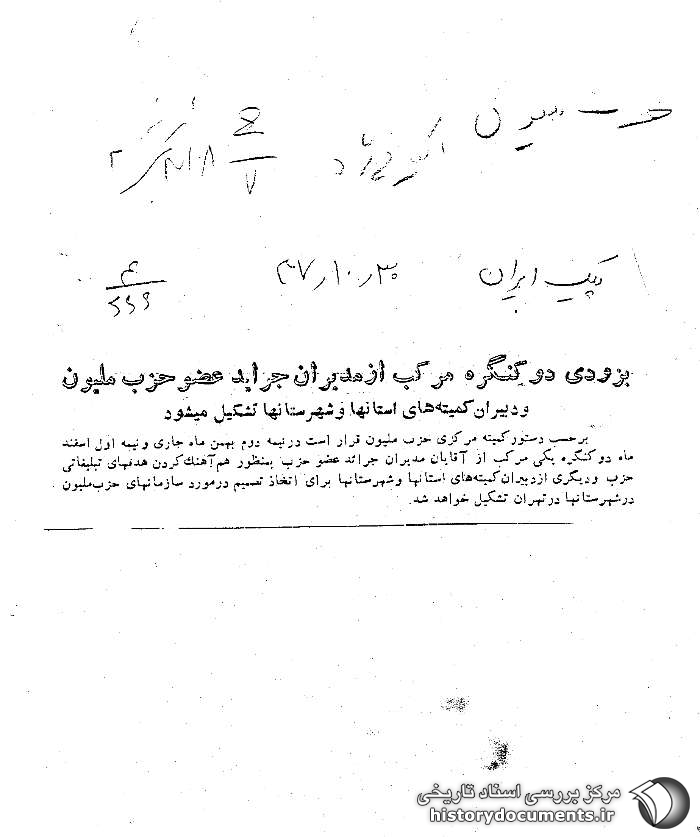 حزب ملیون
پیک ایران ۳۷٫۱۰٫۳۰
بزودی دو کنگره مرکب از مدیران جراید عضو حزب ملیون
و دبیران کمیته‌های استانها و شهرستانها تشکیل میشود
برحسب دستور کمیته مرکزی حزب ملیون قرار است در نیمه دوم بهمن ماه جاری و نیمه اول اسفند
ماه دو کنگره یکی مرکب از آقایان مدیران جرائد عضو حزب بمنظور هم‌آهنك كردن هدفهای تبلیغاتی
حزب و دیگری از دبیران کمیته‌های استانها و شهرستانها برای اتخاذ تصمیم در مورد سازمانهای حزب ملیون
در شهرستانها در تهران تشکیل خواهد شد.
مرکز بررسی اسناد تاریخی
historydocuments.ir